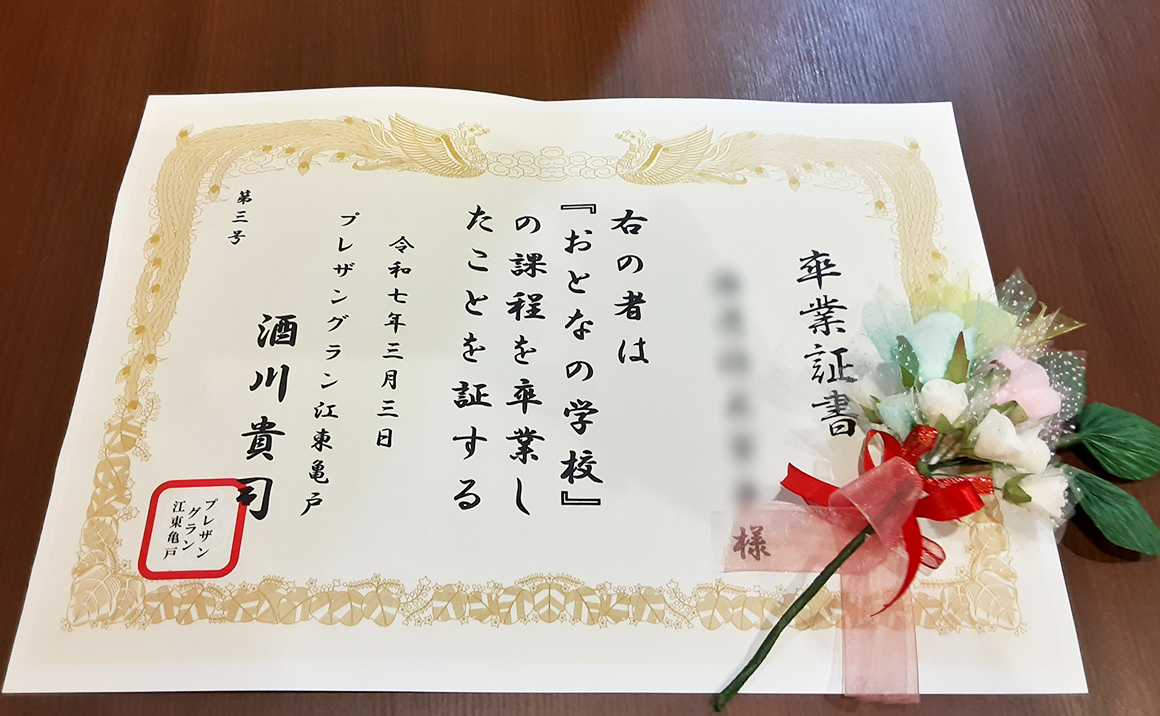 卒業証書
様
右の者は
『おとなの学校』
の課程を卒業し
たことを証する
令和七年三月三日
プレザングラン江東亀戸
酒川貴司
第三号
プレザン
グラン
江東亀戸